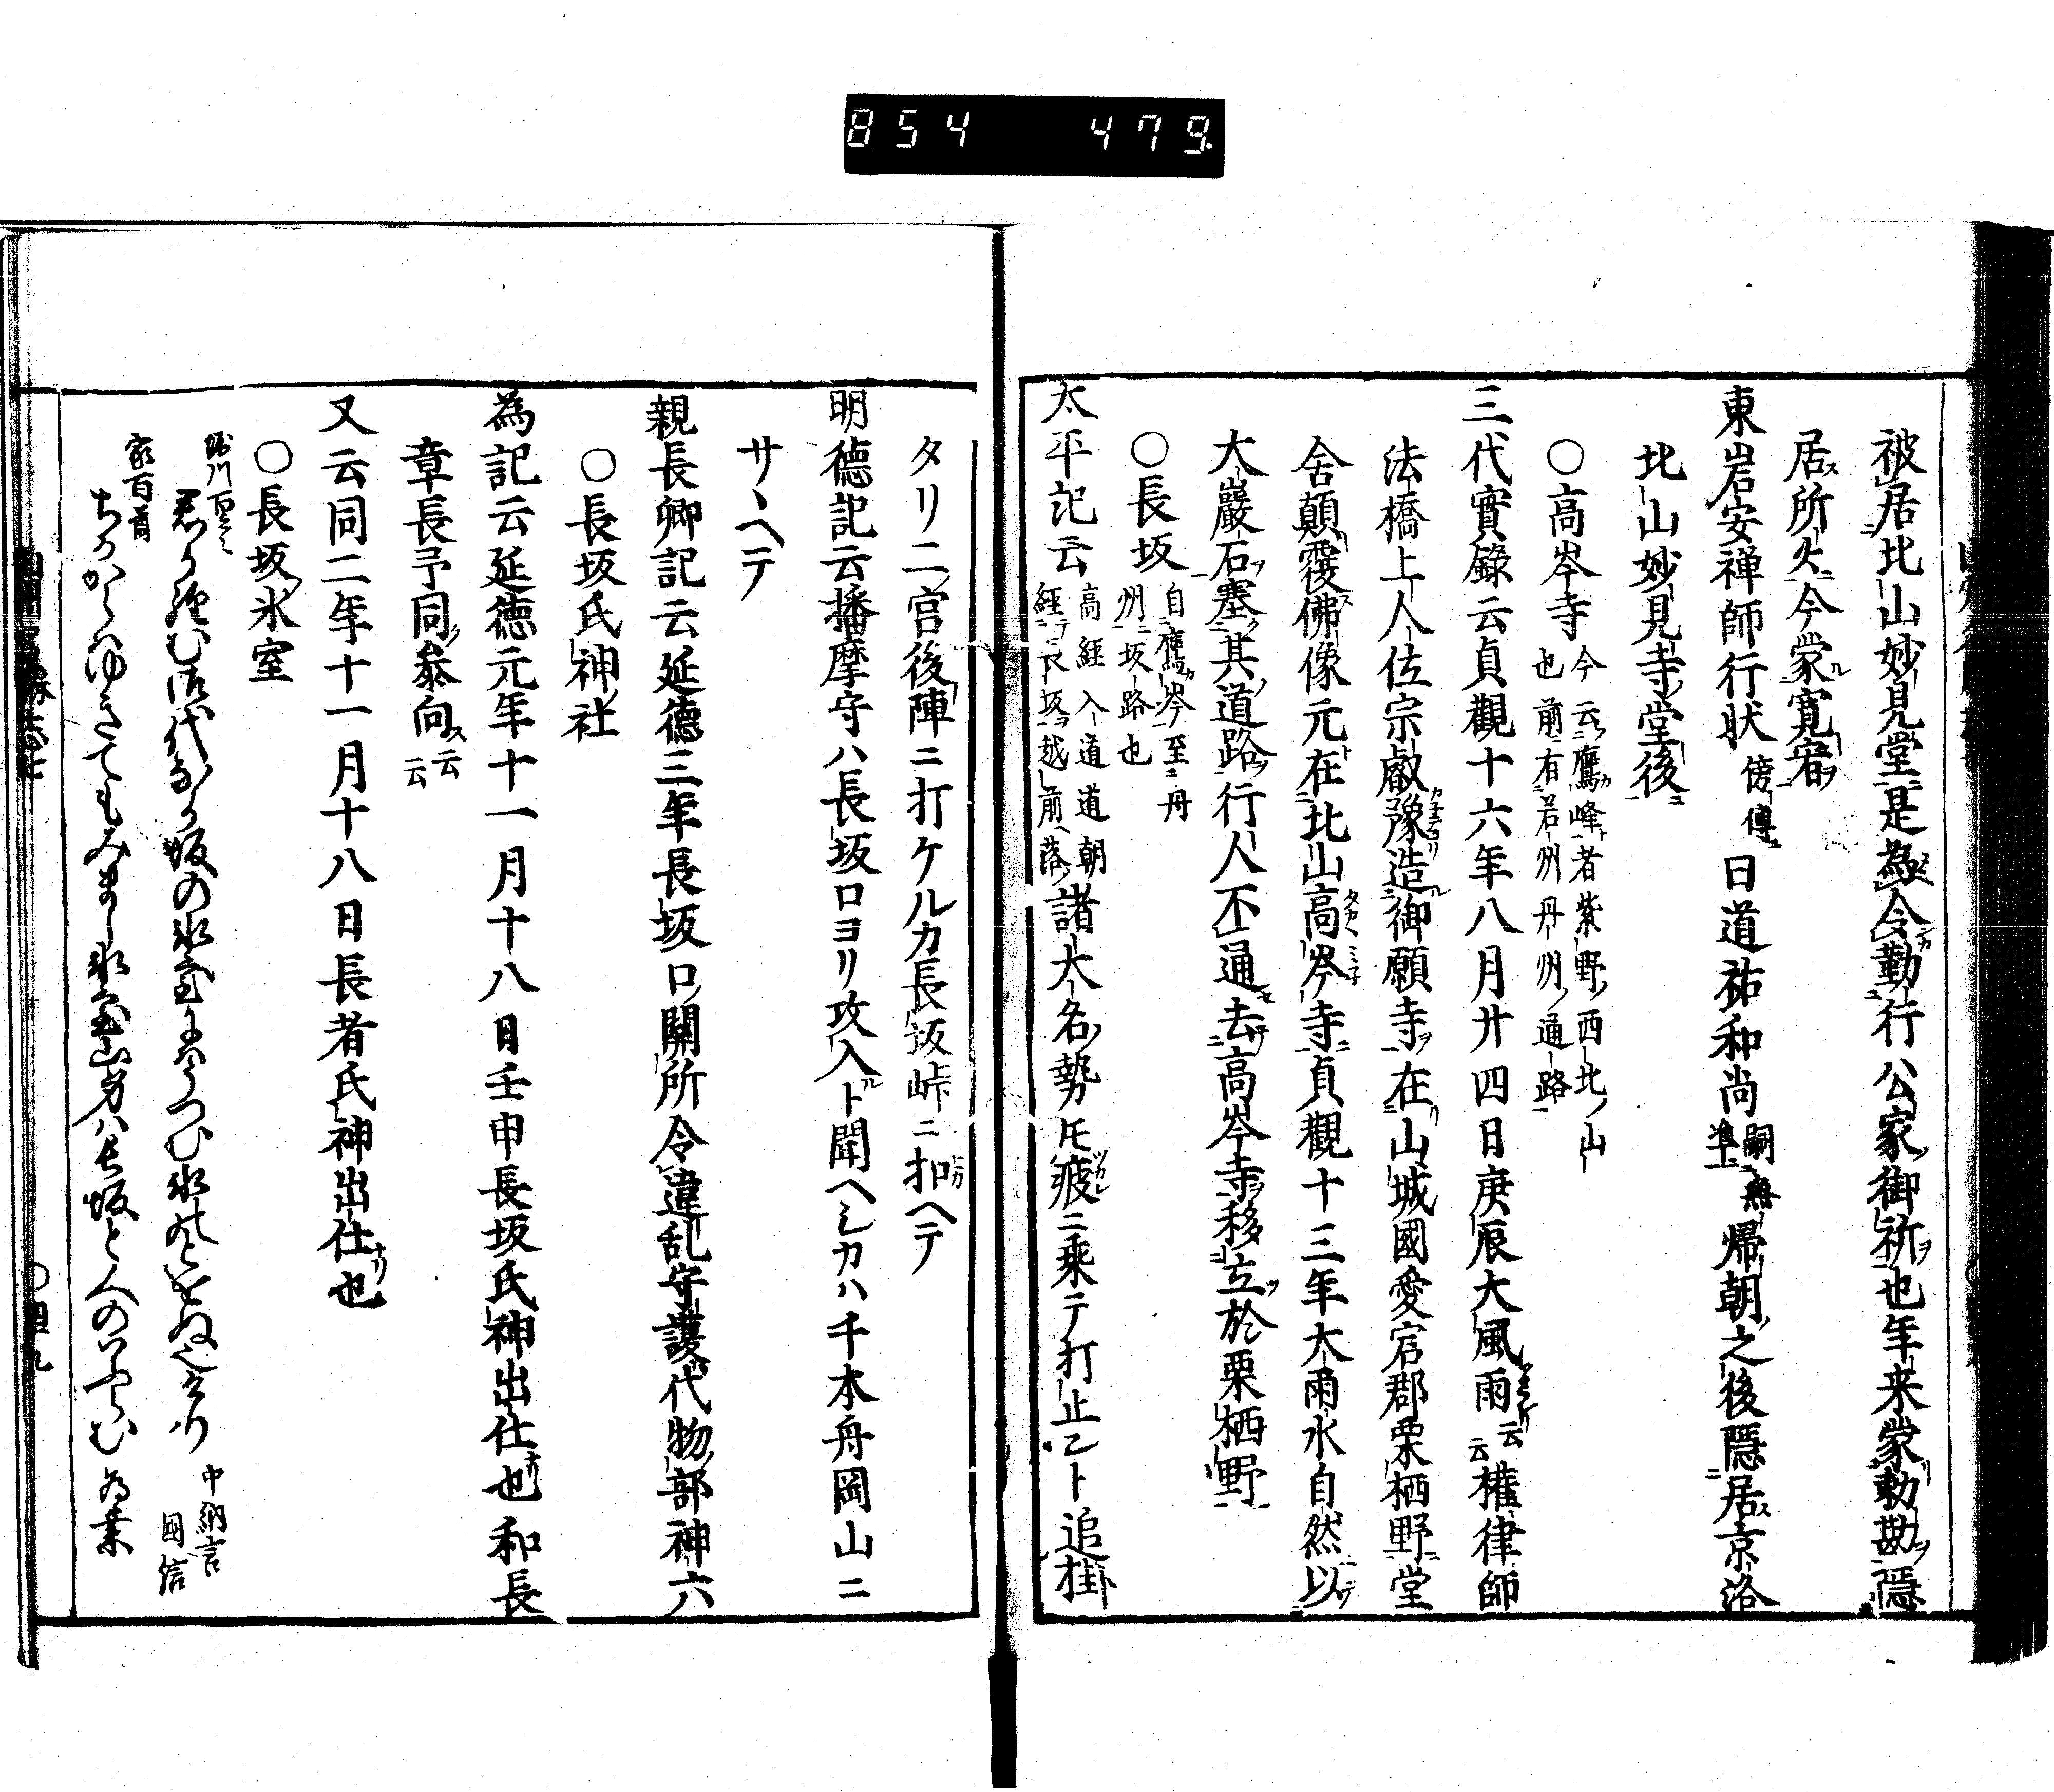 854 479
被居北山妙見堂是為令勤行公家御祈也年来蒙勅勘隠
居所火今蒙寛宥
東岩安禅師行状 傍傳 曰道祐和尚 嗣無準 帰朝之後隠居京洛
北山妙見寺堂後
○高岑寺 今云鷹峰者紫野西北ノ山也前有若州丹州ノ通路
三代實録云貞觀十六年八月廿四日庚辰大風雨云云權律師
法橋上人位宗叡豫造御願寺在山城國愛宕郡栗栖野堂
舍顛覆佛像元在北山高岑寺貞觀十三年大雨水自然以
大巖石塞其道路行人不通去高岑寺移立於栗栖野
○長坂 自鷹岑至丹州坂路也
太平記云 高經入道道朝經長坂越前落 諸大名勢𪜈疲ニ乗テ打止乙ト追掛
タリ二宮後陣ニ打ケルカ長坂峠ニ扣ヘテ
明德記云播摩守ハ長坂口ヨリ攻入ト聞ヘシカハ千本舟岡山ニ
サヽヘテ
親長卿記云延德三年長坂口關所令違乱守護代物部神六
○長坂氏神社
為記云延德元年十一月十八日壬申長坂氏神出仕也和長
章長予同參向云云
又云同二年十一月十八日長者氏神出仕也
○長坂氷室
堀川百首
中納言國信
家百首
ちかからはゆきてもみまし氷室山名ハ長坂と人のいふらむ 為業